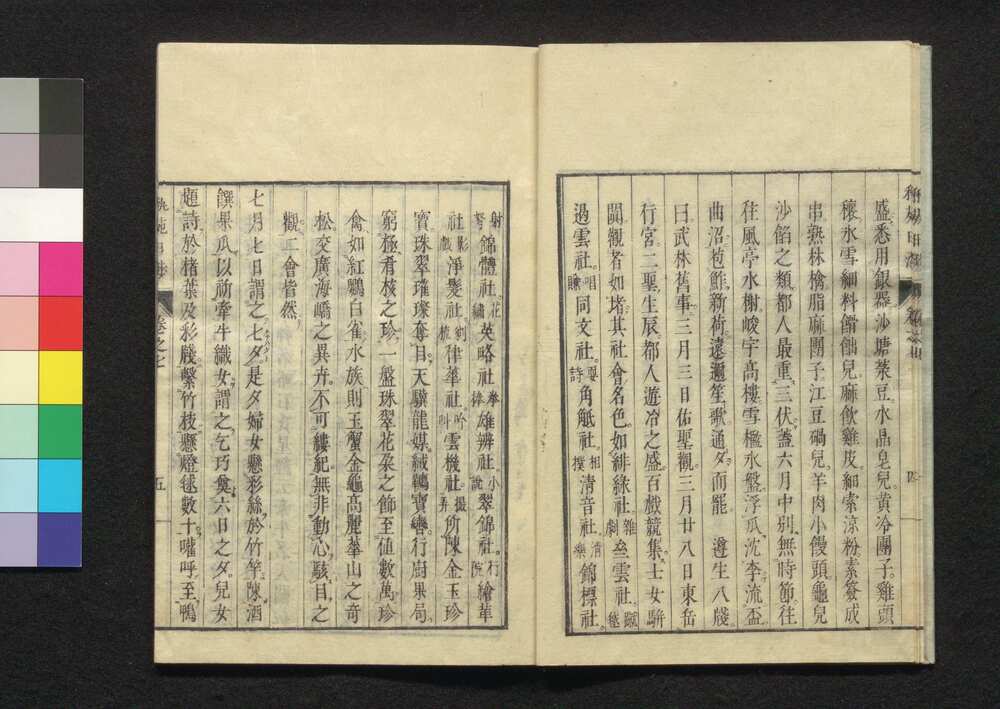 盛悉用銀器沙塘菉豆水晶皂兒黃冷團子雞頭
穰氷雪細料餶飿兒麻飲雞皮細索凉粉素簽成
串熟林檎脂麻團子江豆碢兒羊肉小饅頭龜兒
沙餡之類都人最重三伏蓋六月中別無時節往
往風亭水榭峻宇高樓雪檻氷盤浮瓜沈李流盃
曲沼苞鮓新荷遠邇笙歌通夕而罷 遵生八牋
曰武林舊事三月三日佑聖觀三月廿八日東岳
行宮二聖生辰都人遊冶之盛百戲競集士女駢
闐觀者如堵其社會名色如緋綠社雜劇 雲社蹴
過雲社唱賺同文社耍詩角觝社相撲清音社清樂錦標社
射弩錦體社花繡英略社拳棒雄辨社小說翠錦社行院繪革
社影戲淨髮社 律華社吟叫雲機社撮弄所陳金玉珍
寶珠翠璀璨奪目天驥龍媒絨韉寶轡行廚果局
窮極肴核之珍一盤珠翠花朶之飾至值數萬珍
禽如紅鸚白雀水族則玉蟹金龜高麗華山之奇
松交廣海嶠之異卉不可縷紀無非動心駭目之
觀二會皆然
七月七日謂之七夕是夕婦女懸彩絲於竹竿陳酒
饌果瓜以祈牽牛織女謂之乞巧奠六日之夕兒女
題詩於楮葉及彩牋繫竹枝懸燈毬數十嚾呼至鴨
卷之七
五